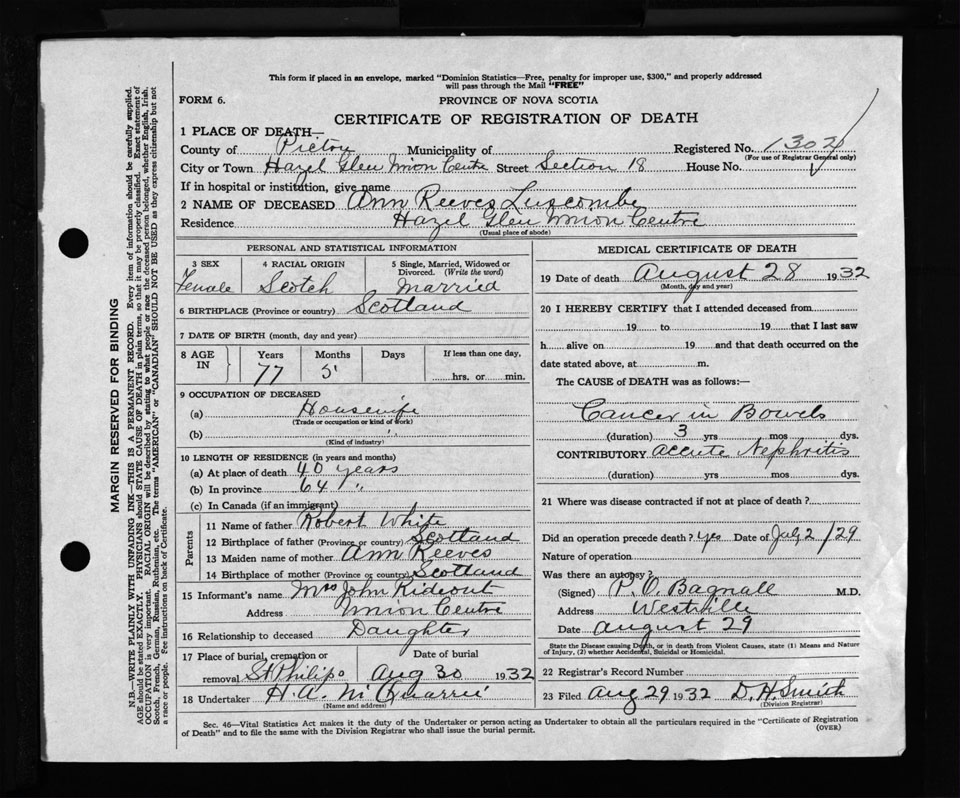 This form if placed in an envelope, marked "Dominion Statistics—Free, penalty for improper use, $300," and properly addressed
will pass through the Mail "FREE"
FORM 6.
PROVINCE OF NOVA SCOTIA
CERTIFICATE OF REGISTRATION OF DEATH
1 PLACE OF DEATH—
County of Pictou Municipality of Registered No.
(For use of Registrar General only)
City or Town Hazel Glen Union Centre Street Section 18 House No.
If in hospital or institution, give name
2 NAME OF DECEASED Ann Reeves Luscombe
Residence Hazel Glen Union Centre
(Usual place of abode)
PERSONAL AND STATISTICAL INFORMATION
3 SEX 4 RACIAL ORIGIN 5 Single, Married, Widowed or
Divorced. (Write the word)
Female Scotch Married
6 BIRTHPLACE (Province or country) Scotland
7 DATE OF BIRTH (month, day and year)
8 AGE IN Years Months Days If less than one day,
77 5 hrs. or min.
9 OCCUPATION OF DECEASED
(a) Housewife
(Trade or occupation or kind of work)
(b) "
(Kind of industry)
10 LENGTH OF RESIDENCE (in years and months)
(a) At place of death 40 years
(b) In province 64 "
(c) In Canada (if an immigrant)
Parents
11 Name of father Robert White
12 Birthplace of father (Province or country) Scotland
13 Maiden name of mother Ann Reeves
14 Birthplace of mother (Province or country) Scotland
15 Informant's name Mrs John Rideout
Address Union Centre
16 Relationship to deceased Daughter
17 Place of burial, cremation or Date of burial
removal St Philips Aug 30 1932
18 Undertaker H. A.
(Name and address)
MEDICAL CERTIFICATE OF DEATH
19 Date of death August 28 1932
(Month, day and year)
20 I HEREBY CERTIFY that I attended deceased from
19 to 19 that I last saw
h alive on 19 and that death occurred on the
date stated above, at m.
The CAUSE of DEATH was as follows:—
Cancer in Bowels
(duration) 3 yrs mos dys.
CONTRIBUTORY accute Nephritis
(duration) yrs mos dys.
21 Where was disease contracted if not at place of death ?
Did an operation precede death ? yes Date of July 2/29
Nature of operation
Was there an autopsy ?
(Signed) P. O. Bagnall M.D.
Address Westville
Date August 29
State the Disease causing Death, or in death from Violent Causes, state (1) Means and Nature
of Injury, (2) whether Accidental, Suicidal or Homicidal.
22 Registrar's Record Number
23 Filed Aug 29 1932 D. H Smith
(Division Registrar)
Sec. 46—Vital Statistics Act makes it the duty of the Undertaker or person acting as Undertaker to obtain all the particulars required in the "Certificate of Registration
of Death" and to file the same with the Division Registrar who shall issue the burial permit.
(OVER)
MARGIN RESERVED FOR BINDING
N.B.—WRITE PLAINLY WITH UNFADING INK—THIS IS A PERMANENT RECORD. Every item of information should be carefully supplied.
AGE should be stated EXACTLY. PHYSICIANS should STATE CAUSE OF DEATH in plain terms, so that it may be properly classified. Exact statement of
OCCUPATION is very important. RACIAL ORIGIN will be described by stating to what people or race the deceased person belonged, whether English, Irish,
Scotch, French, German, Russian, Ruthenian, etc. The terms "AMERICAN" or "CANADIAN" SHOULD NOT BE USED as they express citizenship but not
a race or people. Fee instructions on back of Certificate.